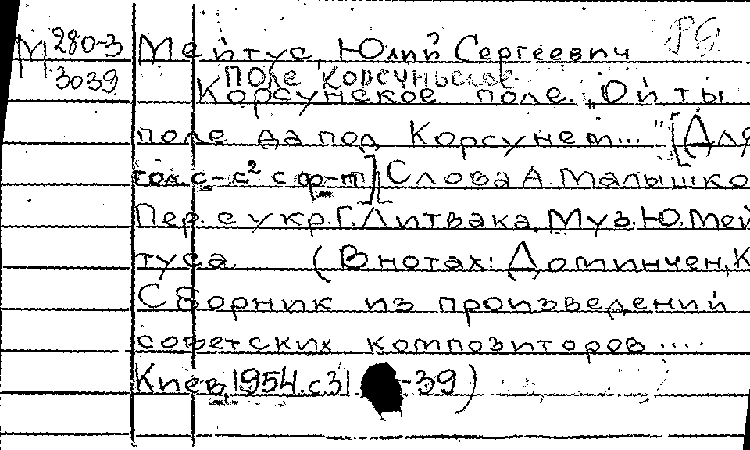 М 280-3 Мейтус, Юлий Сергеевич РБ
3039 Поле Корсуньское
Корсунское поле. „Ой ты
поле да под Корсунем..." [Для
гол. с-с² с ф-п] Слова А. Малышко
Пер. с укр. Г. Литвака. Муз. Ю. Мей
туса (В нотах: Доминчен, К
Сборник из произведений
советских композиторов....
Киев, 1954. с 31 -39)